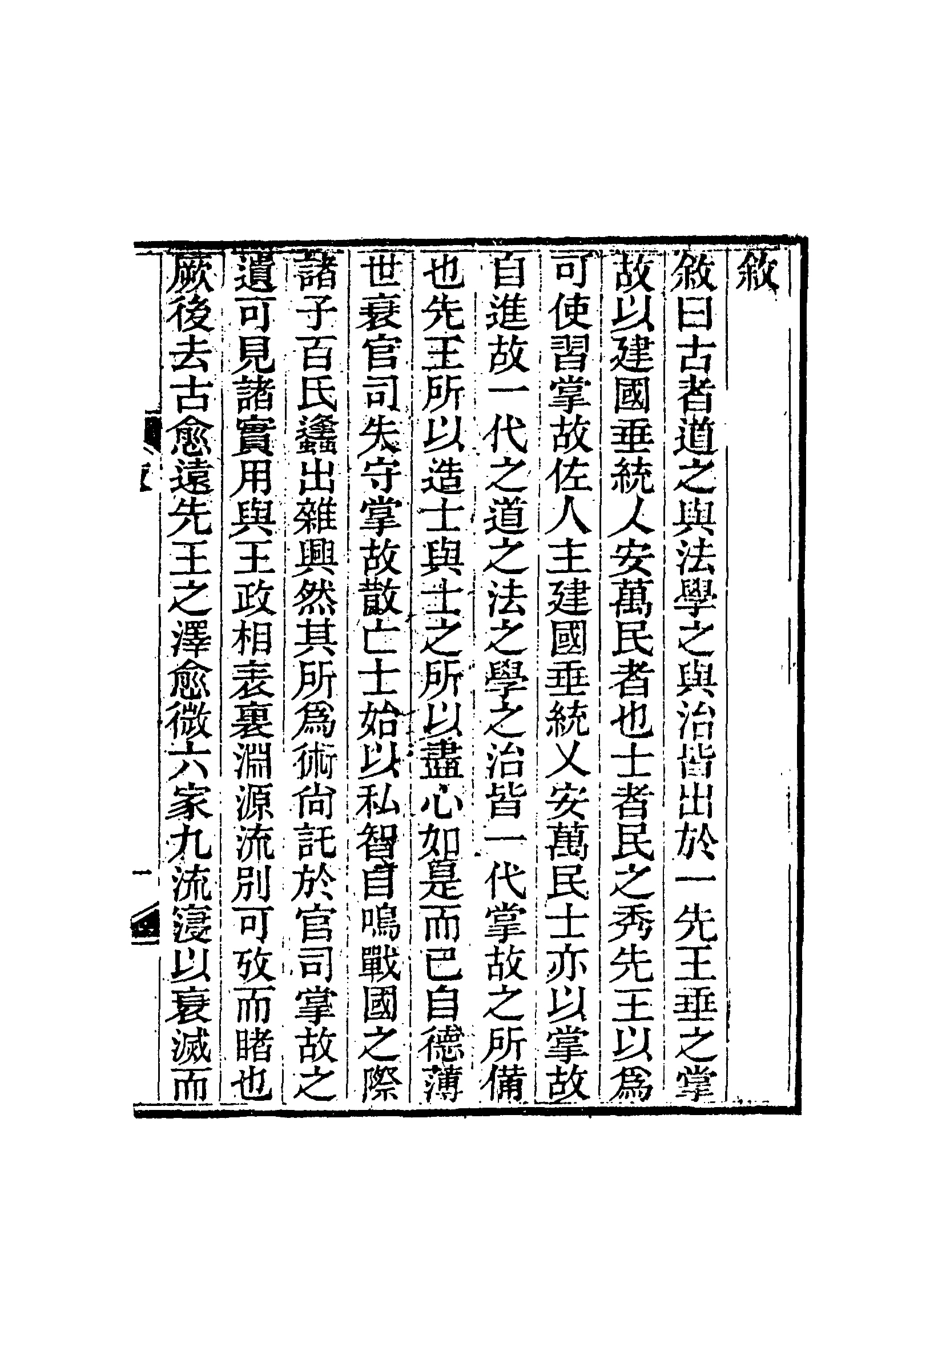 敘
敘曰古者道之與法學之與治皆出於一先王垂之掌
故以建國垂統乂安萬民者也士者民之秀先王以爲
可使習掌故佐人主建國垂統乂安萬民士亦以掌故
自進故一代之道之法之學之治皆一代掌故之所備
也先王所以造士與士之所以盡心如是而已自德薄
世衰官司失守掌故散亡士始以私智自鳴戰國之際
諸子百氏蠭出雜興然其所爲術尙託於官司掌故之
遺可見諸實用與王政相表裏淵源流別可攷而睹也
厥後去古愈遠先王之澤愈微六家九流寖以衰滅而
一